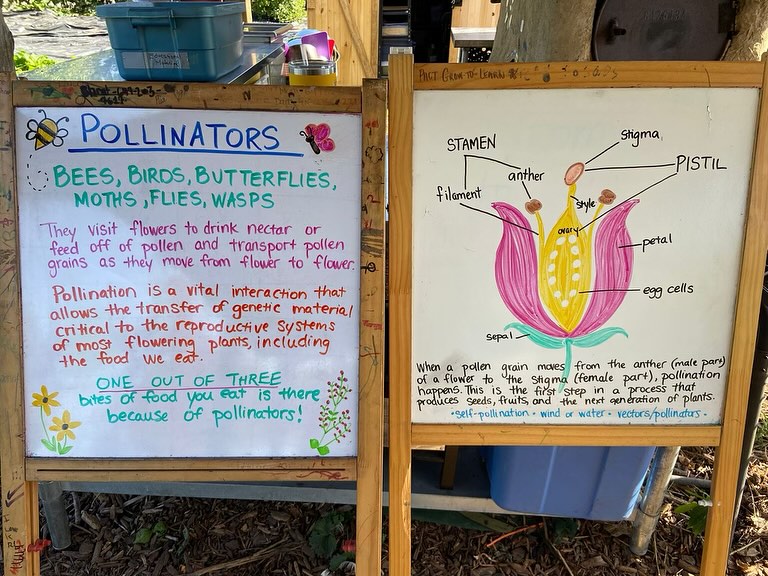 POLLINATORS
BEES, BIRDS, BUTTERFLIES,
MOTHS, FLIES, WASPS
They visit flowers to drink nectar or
feed off of pollen and transport pollen
grains as they move from flower to flower.
Pollination is a vital interaction that
allows the transfer of genetic material
critical to the reproductive systems
of most flowering plants, including
the food we eat.
ONE OUT OF THREE
bites of food you eat is there
because of pollinators!
STAMEN
anther
filament
stigma
PISTIL
style
ovary
petal
egg cells
sepal
When a pollen grain moves from the anther (male part)
of a flower to the stigma (female part), pollination
happens. This is the first step in a process that
produces seeds, fruits, and the next generation of plants.
• self-pollination • wind or water • vectors/pollinators •